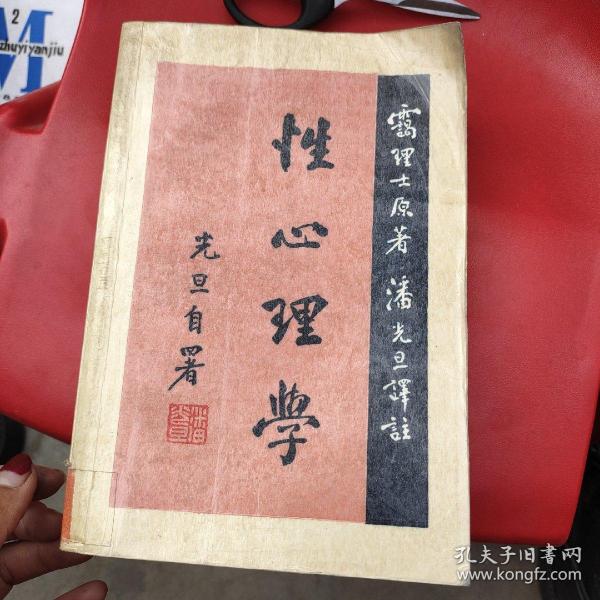 靄理士原著 潘光旦譯註
性心理學
光旦自署
潘光旦
2
zhuyiyanjiu
M
孔夫子旧书网
www.kongfz.com